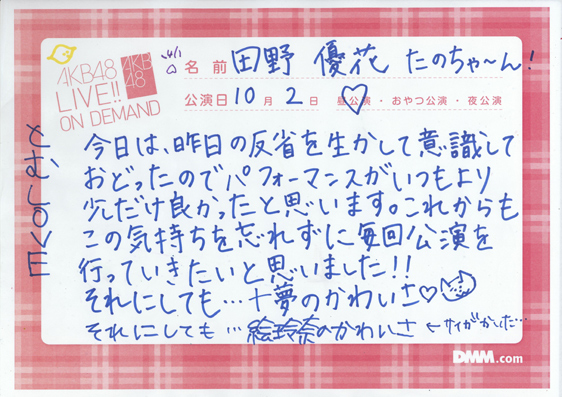 AKB48
LIVE!!
ON DEMAND
AKB
48
名前 田野 優花 たのちゃ〜ん!
公演日 10月2日 昼公演・おやつ公演・夜公演
今日は、昨日の反省を生かして意識して
おどったのでパフォーマンスがいつもより
少しだけ良かったと思います。これからも
この気持ちを忘れずに毎回公演を
行っていきたいと思いました!!
それにしても…十夢のかわいさ♡
それにしても…絵玲奈のかわいさ ←サイがかした…
DMM.com